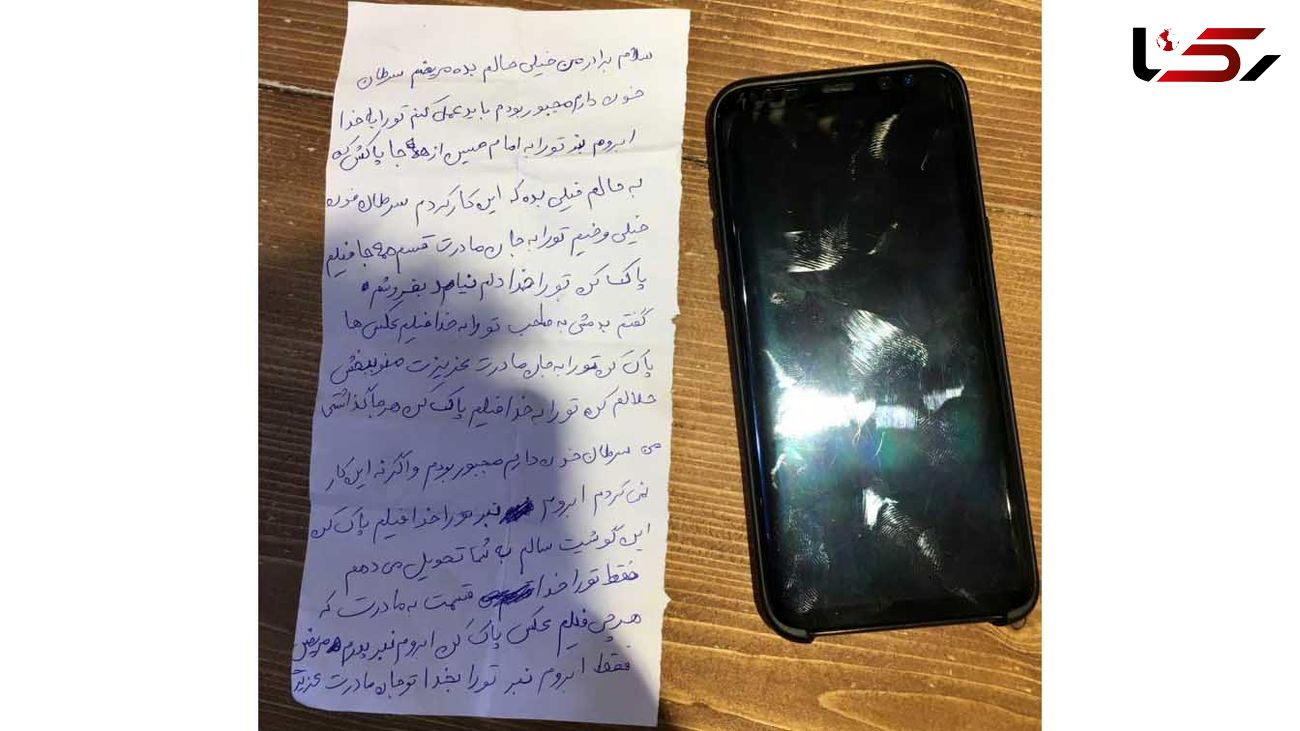 رکنا
سلام برادر من خیلی حالم بده مریضم سرطان
خون دارم مجبور بودم باید عمل کنم تورا به خدا
ابروم نبر تورا به امام حسین از همه جا پاکش کن
به حالم خیلی بده که این کار کردم سرطان خون
خیلی وخیم تورا به جان مادرت قسم همه جا فیلم
پاک کن تو را خدا دلم نیامد بفروشم
گفتم بدمش به صاحب تو را به خدا فیلم عکس ها
پاک کن تورا به جان مادرت عزیزت منو ببخش
حلالم کن تو را به خدا فیلم پاک کن هر جا گذاشتی
من سرطان خون دارم مجبور بودم واگر نه این کار
نمی کردم ابروم نبر تورا خدا فیلم پاک کن
این گوشیت سالم به شما تحویل می دهم
فقط تورا خدا قسمت به مادرت که
هر چی فیلم عکس پاک کن ابروم نبر مریض
فقط ابروم نبر تورا بخدا تو جان مادرت عزیزت